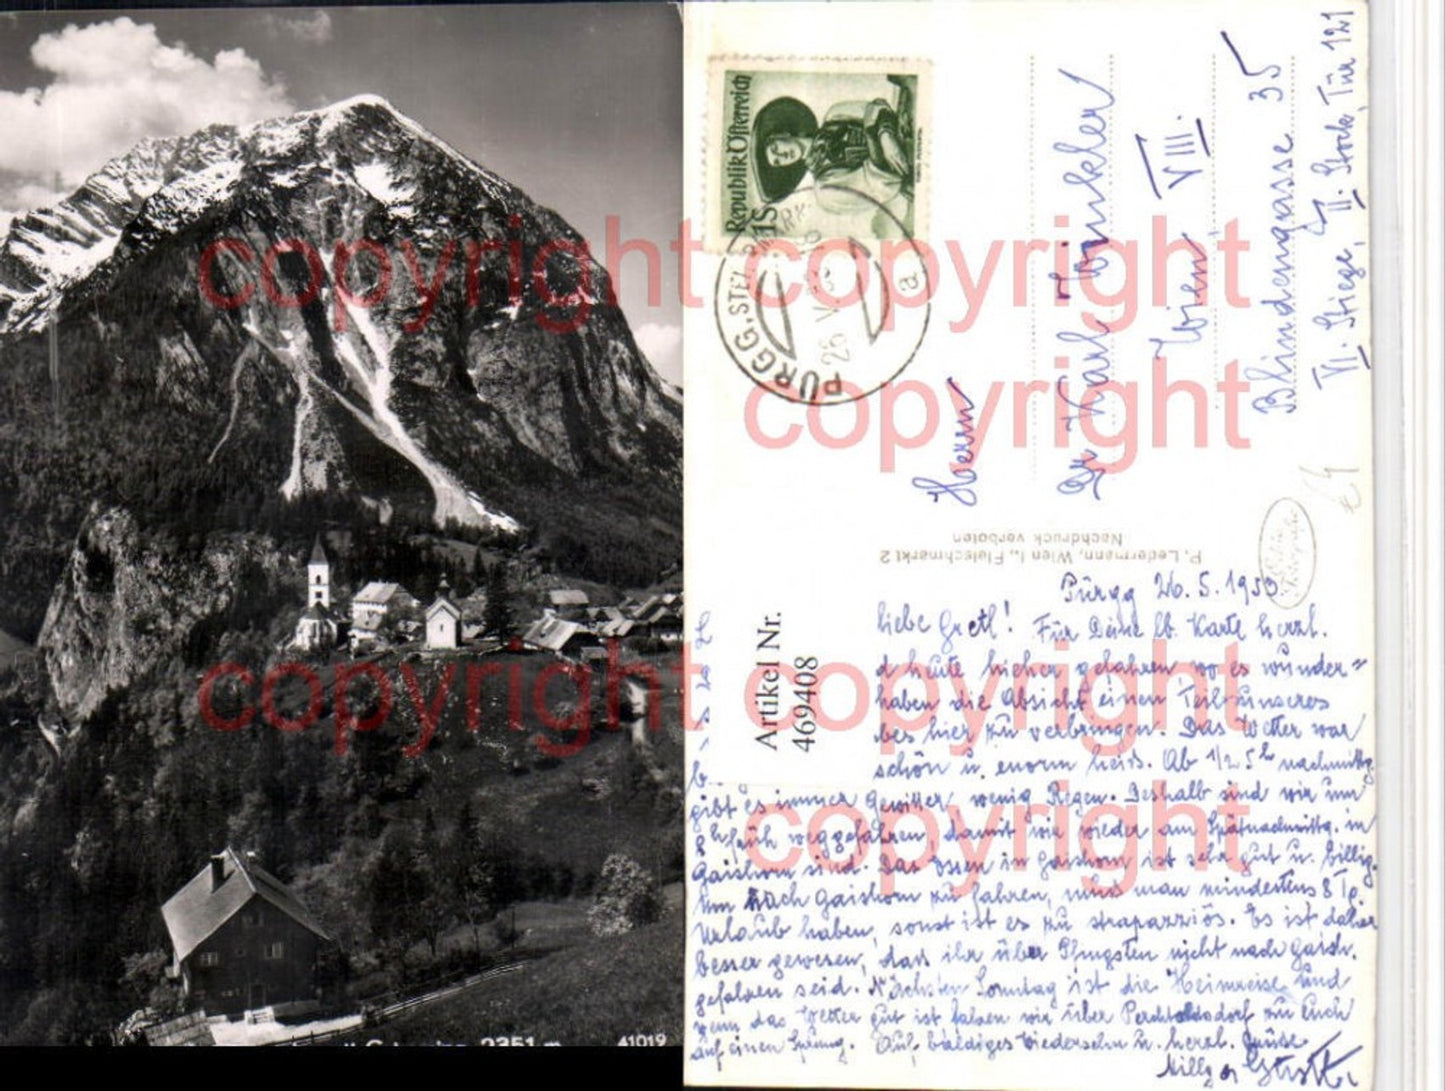 2351 m
41019
Republik Österreich
1S
PÜRGG, STEIERMARK
26. V. 53
a
Herrn
Karl
Wien VIII.
Blindengasse 35
VI. Stiege, II. Stock, Tür 121
P. Ledermann, Wien I., Fleischmarkt 2
Nachdruck verboten
Artikel Nr.
469408
Pürgg 26. 5. 1953
Liebe Gretl! Für Deine lb. Karte herzl.
heute hieher gefahren, wo es wunder=
haben die Absicht einen Teil unseres
bes hier zu verbringen. Das Wetter war
schön u. enorm heiß. Ab 1/2 5h nachmittg.
gibt es immer Gewitter, wenig Regen. Deshalb sind wir um
8h früh weggefahren, damit wir wieder am Spätnachmittg. in
Gaishorn sind. Das Essen in Gaishorn ist sehr gut u. billig.
Um nach Gaishorn zu fahren, muß man mindestens 8 Tg
Urlaub haben, sonst ist es zu strapaziös. Es ist daher
besser gewesen, daß ihr über Pfingsten nicht nach Gaish.
gefahren seid. Nächsten Sonntag ist die Heimreise und
wenn das Wetter gut ist fahren wir über Perchtoldsdorf zu Euch
auf einen Sprung. Auf baldiges Wiedersehn u. herzl. Grüße
copyright copyright
copyright
copyright copyright
copyright